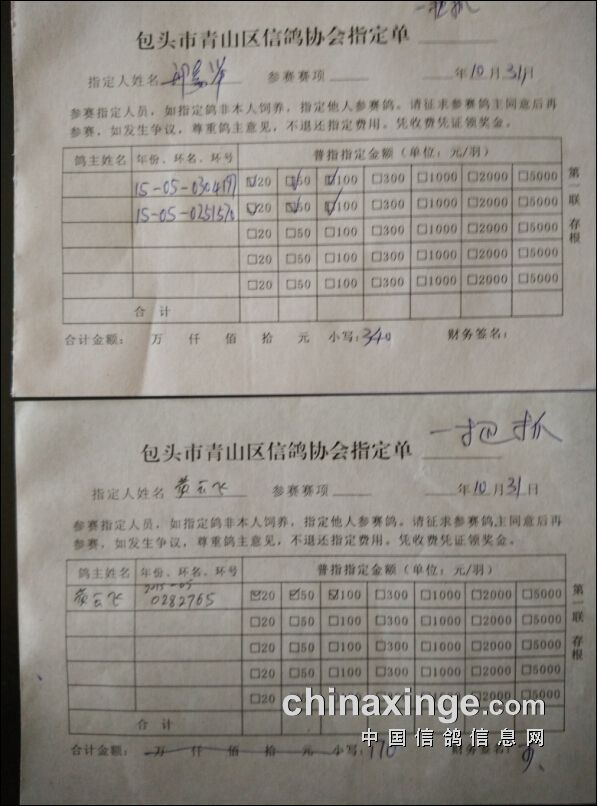 一把抓
包头市青山区信鸽协会指定单
指定人姓名 参赛赛项 年10月31日
参赛指定人员，如指定鸽非本人饲养，指定他人参赛鸽。请征求参赛鸽主同意后再
参赛，如发生争议，尊重鸽主意见，不退还指定费用。凭收费凭证领奖金。
鸽主姓名 年份、环名、环号 普指指定金额（单位：元/羽）
15-05-0304191 ☑20 ☑50 ☑100 □300 □1000 □2000 □5000
15-05-0251570 ☑20 ☑50 ☑100 □300 □1000 □2000 □5000
□20 □50 □100 □300 □1000 □2000 □5000
□20 □50 □100 □300 □1000 □2000 □5000
□20 □50 □100 □300 □1000 □2000 □5000
合 计
第一联 存根
合计金额： 万 仟 佰 拾 元 小写：340 财务签名：
一把抓
包头市青山区信鸽协会指定单
指定人姓名 黄玉飞 参赛赛项 年10月31日
参赛指定人员，如指定鸽非本人饲养，指定他人参赛鸽。请征求参赛鸽主同意后再
参赛，如发生争议，尊重鸽主意见，不退还指定费用。凭收费凭证领奖金。
鸽主姓名 年份、环名、环号 普指指定金额（单位：元/羽）
黄玉飞 2015-05 0282765 ☑20 ☑50 ☑100 □300 □1000 □2000 □5000
□20 □50 □100 □300 □1000 □2000 □5000
□20 □50 □100 □300 □1000 □2000 □5000
□20 □50 □100 □300 □1000 □2000 □5000
□20 □50 □100 □300 □1000 □2000 □5000
合 计
第一联 存根
合计金额： 万 仟 佰 拾 元 小写：170 财务签名：
chinaxinge.com
中国信鸽信息网